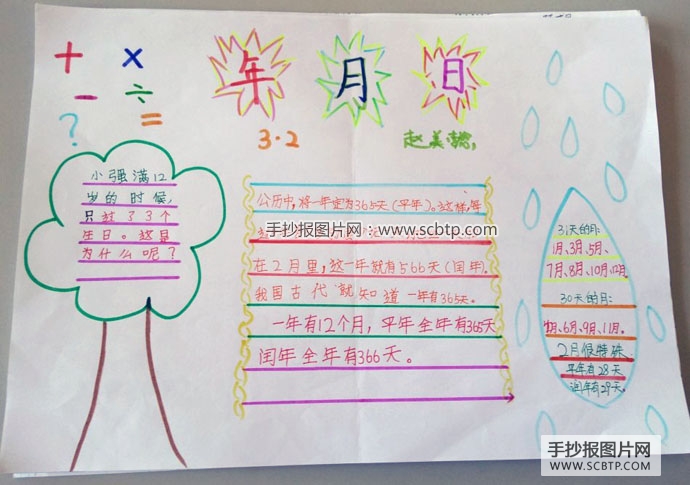 + ×
- ÷
? =
年 月 日
3·2
小强满12
岁的时候,
只过了3个
生日。这是
为什么呢?
公历中,将一年定为365天(平年)。这样,每
手抄报图片网:www.scbtp.com
在2月里,这一年就有566天(闰年).
我国古代就知道一年有365天。
一年有12个月,平年全年有365天
闰年全年有366天。
31天的月:
1月、3月、5月、
7月、8月、10月、12月.
30天的月:
4月、6月、9月、11月。
2月很特殊
平年有28天
闰年有29天。
手抄报图片网
WWW.SCBTP.COM